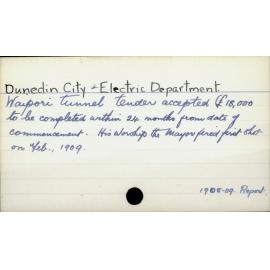 Dunedin City - Electric Department
Waipori tunnel tender accepted (£18,000
to be completed within 24 months from date of
commencement. His Worship the Mayor fired first shot
on Feb., 1909.
1908-09 Report.